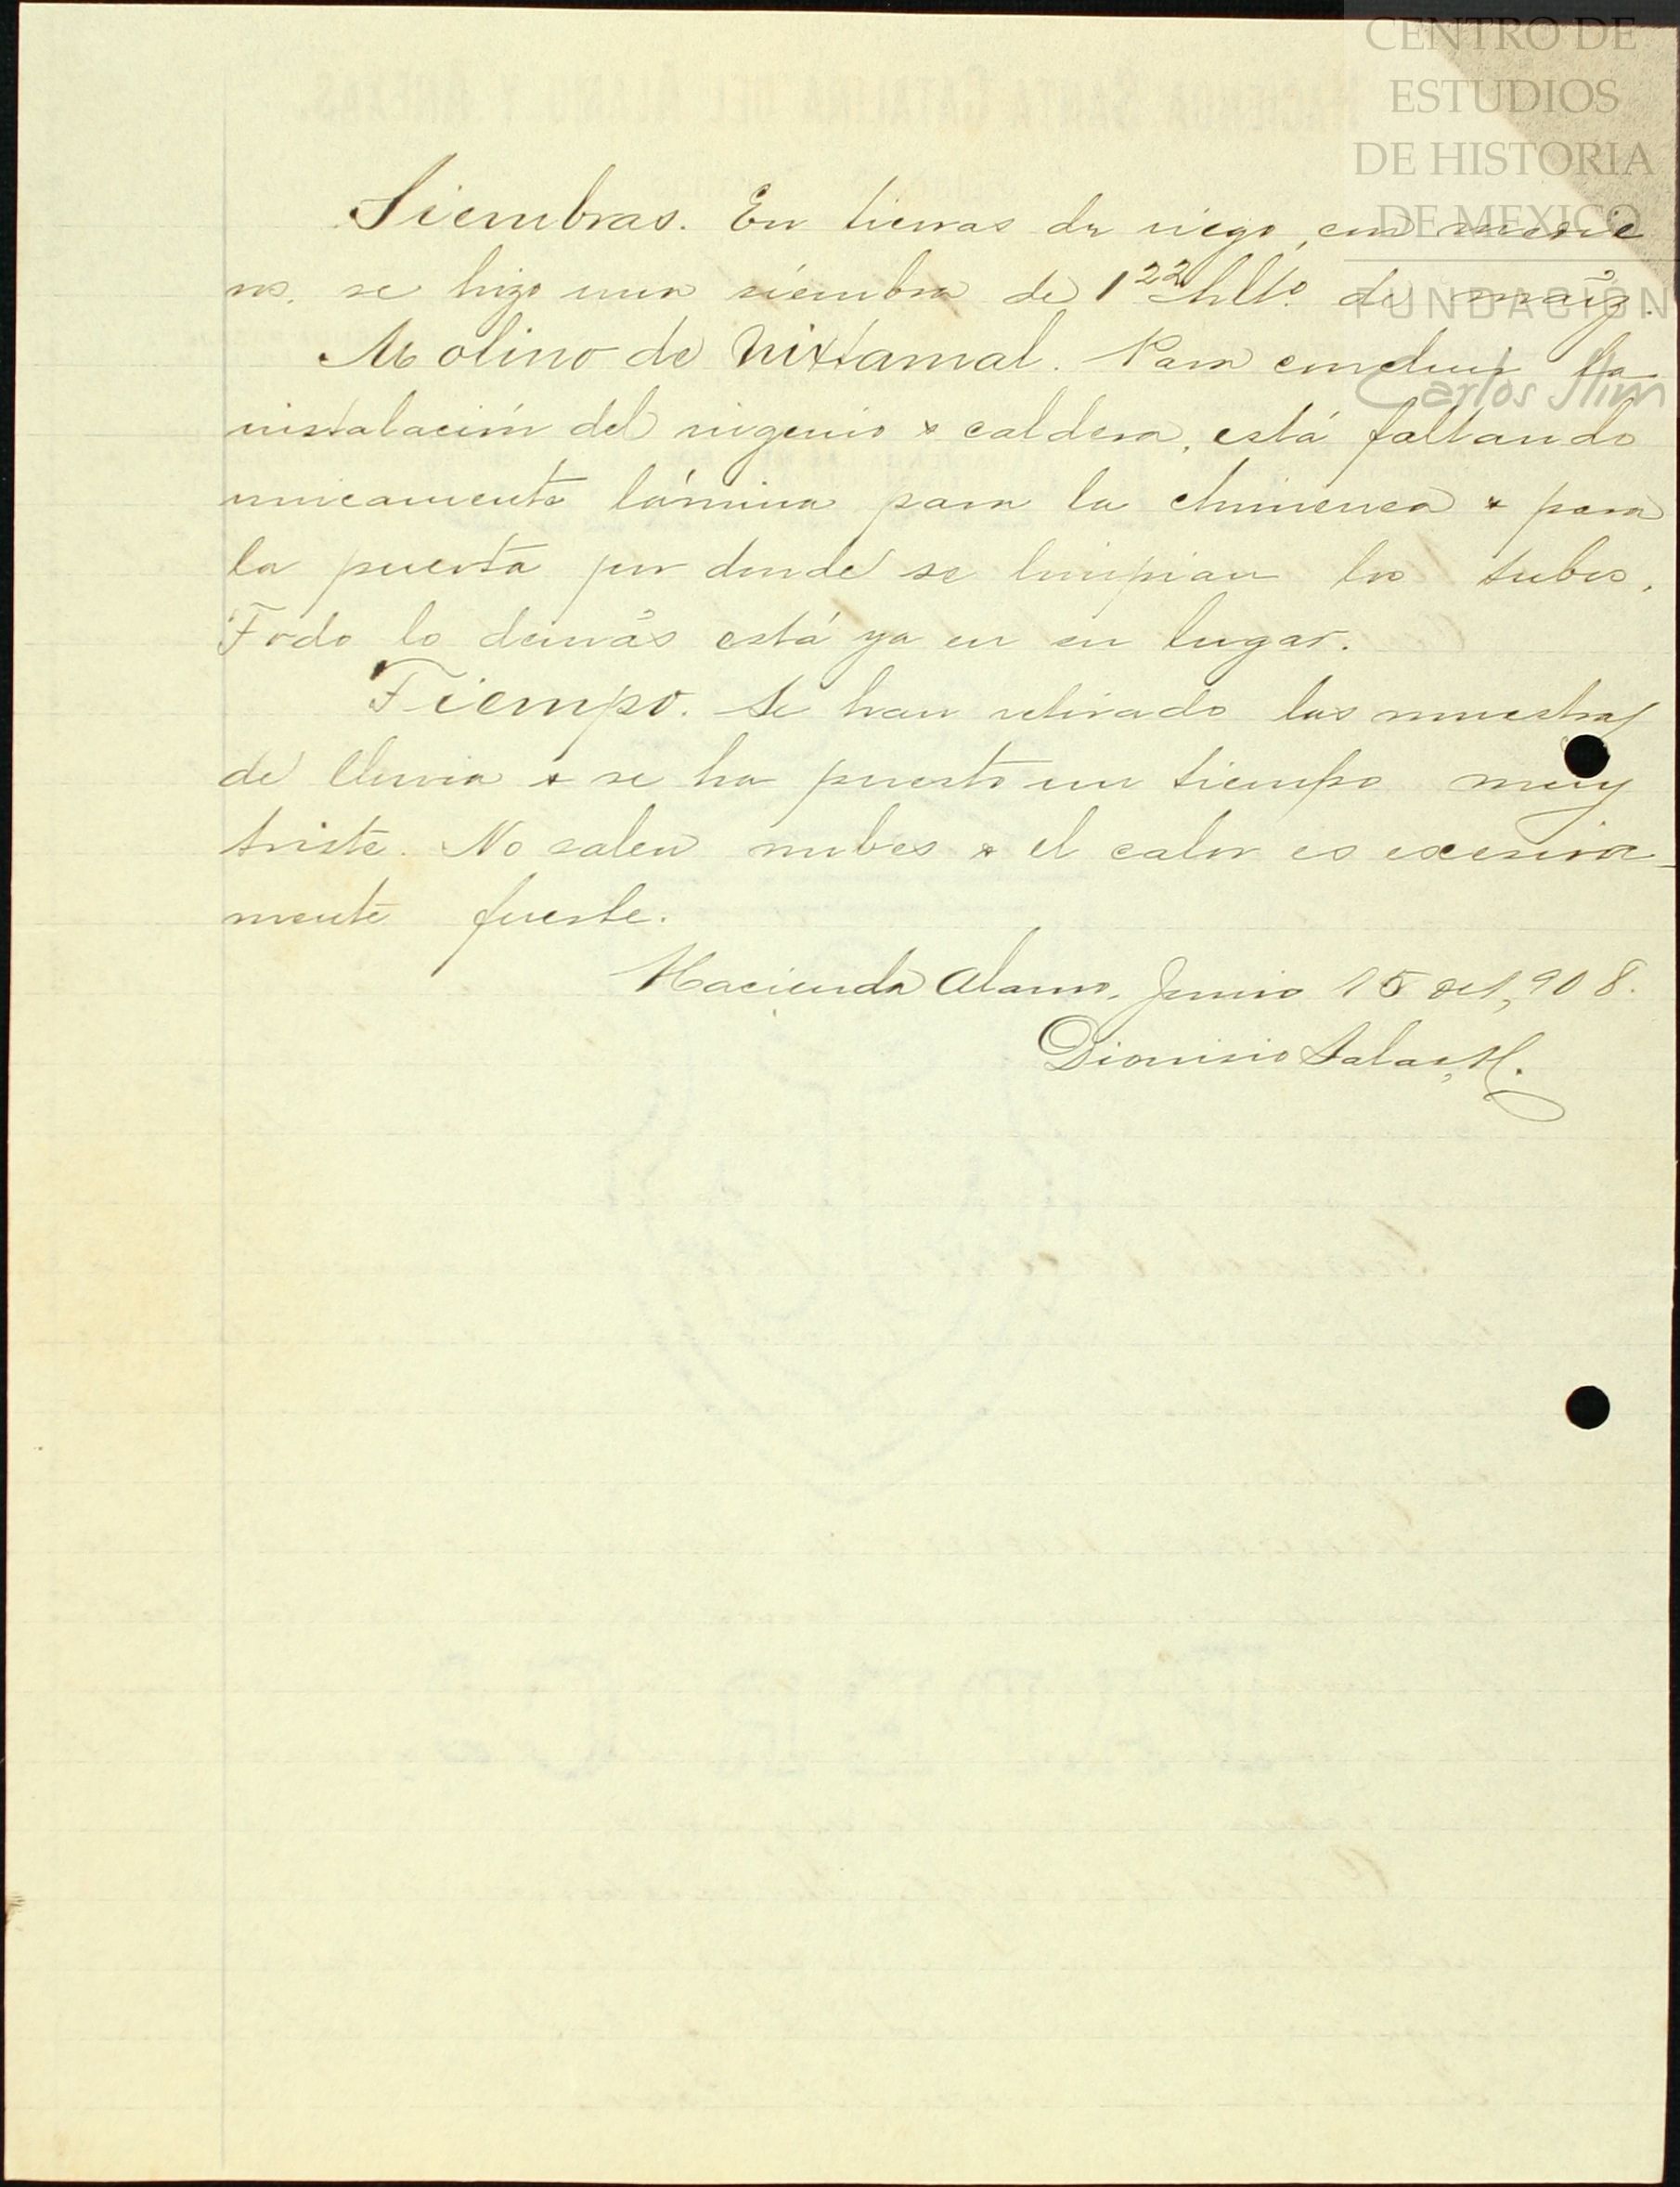 CENTRO DE
ESTUDIOS
DE HISTORIA
DE MEXICO
FUNDACIÓN
Carlos Slim
Siembras. En tierras de riego, con
se hizo una siembra de 1 22 hllo. de maíz.
Molino de Nixtamal. Para concluir la
instalación del ingenio y caldera, está faltando
unicamente lámina para la chimenea y para
la puerta por donde se limpian los tubos.
Todo lo demás está ya en su lugar.
Tiempo. Se han retirado las muestras
de lluvia y se ha puesto un tiempo muy
triste. No salen nubes y el calor es excesiva-
mente fuerte.
Hacienda Alamo, Junio 15 de 1,908.
Dionisio Salas H.